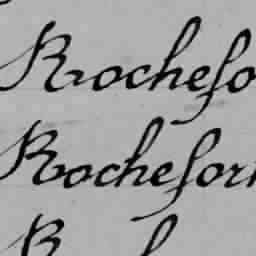 Rochefo
Rochefort